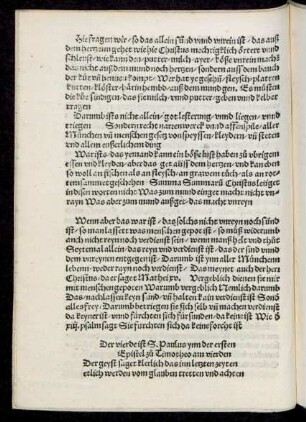 Hie fragen wir, so das allein sünd vnnd vnrein ist, das auß
dem hertzen gehet wie hie Christus mechtigklich örtert vnnd
schleust, wie kann den putter, milch, ayer, köße vnrein machẽ
das nicht auß dem mund noch hertzen, sondern auß dem bauch
der kue vñ hennẽ kompt, Wer hat ye gesehẽ fleysch, platten
kutten, klöster, härin hembd, auß dem mund gen, Es müsten
die küe sündigen, das sie milch, vnd putter, geben vnd kelber
tragen
Darumb ist nicht allein, gotlesterung, vnd liegen, vnnd
triegen Sondern recht narrenwerck vnd affenspile, aller
München vñ menschen gesetz von speyssen kleyden, vñ stetten
vnd allem eusserlichem ding
War ists, das yemand kann ein böße lust haben zu vbrigem
essen vnd kleyden, aber das gehet auß dem hertzen, vnd kan eben
so woll an fischen als an fleysch an grawem tuch, als an rotem
samat geschehen Summa Summarũ Christus leuget
in disen worten nicht Was zum mund einget macht nicht vnrayn
Was aber zum mund außget, das macht vnrayn
Wenn aber das war ist, das solchs nicht vnreyn noch sünd
ist, so man lasset was menschen gepotẽ ist, so muß widerumb
auch nicht reyn noch verdienst sein, wenn manß helt vnd thůt
Seytemal allein das reyn vnd verdienstlich ist, das der sünd vnd
dem vnreynen entgegen ist, Darumb ist yn aller München
lebenn, weder rayn noch verdinst, Das meynet auch der herr
Christus, da er saget Mathei xv. Vergeblich dienen sie mir
mit menschen gepoten Warumb vergeblich Nemlich darumb
Das nachlassen keyn sünd, vñ halten kain verdienst ist Sonder
alles frey, Darumb betriegen sie sich selb vñ machen verdienst
da keyner ist, vnnd fürchten sich für sünden, da keine ist, Wie d
xiij. psalm sagt Sie fürchten sich da keine forcht ist
Der vierde ist S. Paulus ynn der ersten
Epistel zů Timotheo am vierden
Der geyst saget klerlich das inn letzten zeyten
etlich werden vom glauben tretten vnd achten